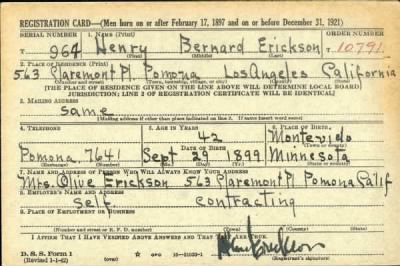 REGISTRATION CARD—(Men born on or after February 17, 1897 and on or before December 31, 1921)
SERIAL NUMBER 1. NAME (Print) ORDER NUMBER
964 Henry Bernard Erickson 10791
(First) (Middle) (Last)
2. PLACE OF RESIDENCE (Print)
563 Claremont Pl. Pomona Los Angeles California
(Number and street) (Town, township, village, or city) (County) (State)
[THE PLACE OF RESIDENCE GIVEN ON THE LINE ABOVE WILL DETERMINE LOCAL BOARD
JURISDICTION; LINE 2 OF REGISTRATION CERTIFICATE WILL BE IDENTICAL]
3. MAILING ADDRESS
same
[Mailing address if other than place indicated on line 2. If same insert word same]
4. TELEPHONE 5. AGE IN YEARS 6. PLACE OF BIRTH
42 Montevido
DATE OF BIRTH (Town or county)
Pomona 7641 Sept 29 1899 Minnesota
(Exchange) (Number) (Mo.) (Day) (Yr.) (State or country)
7. NAME AND ADDRESS OF PERSON WHO WILL ALWAYS KNOW YOUR ADDRESS
Mrs. Olive Erickson 563 Claremont Pl Pomona Calif
8. EMPLOYER'S NAME AND ADDRESS
Self contracting
9. PLACE OF EMPLOYMENT OR BUSINESS
(Number and street or R. F. D. number) (Town) (County) (State)
I AFFIRM THAT I HAVE VERIFIED ABOVE ANSWERS AND THAT THEY ARE TRUE.
D. S. S. Form 1
(Revised 1-1-42) (over) 16—21630-1 (Registrant's signature)